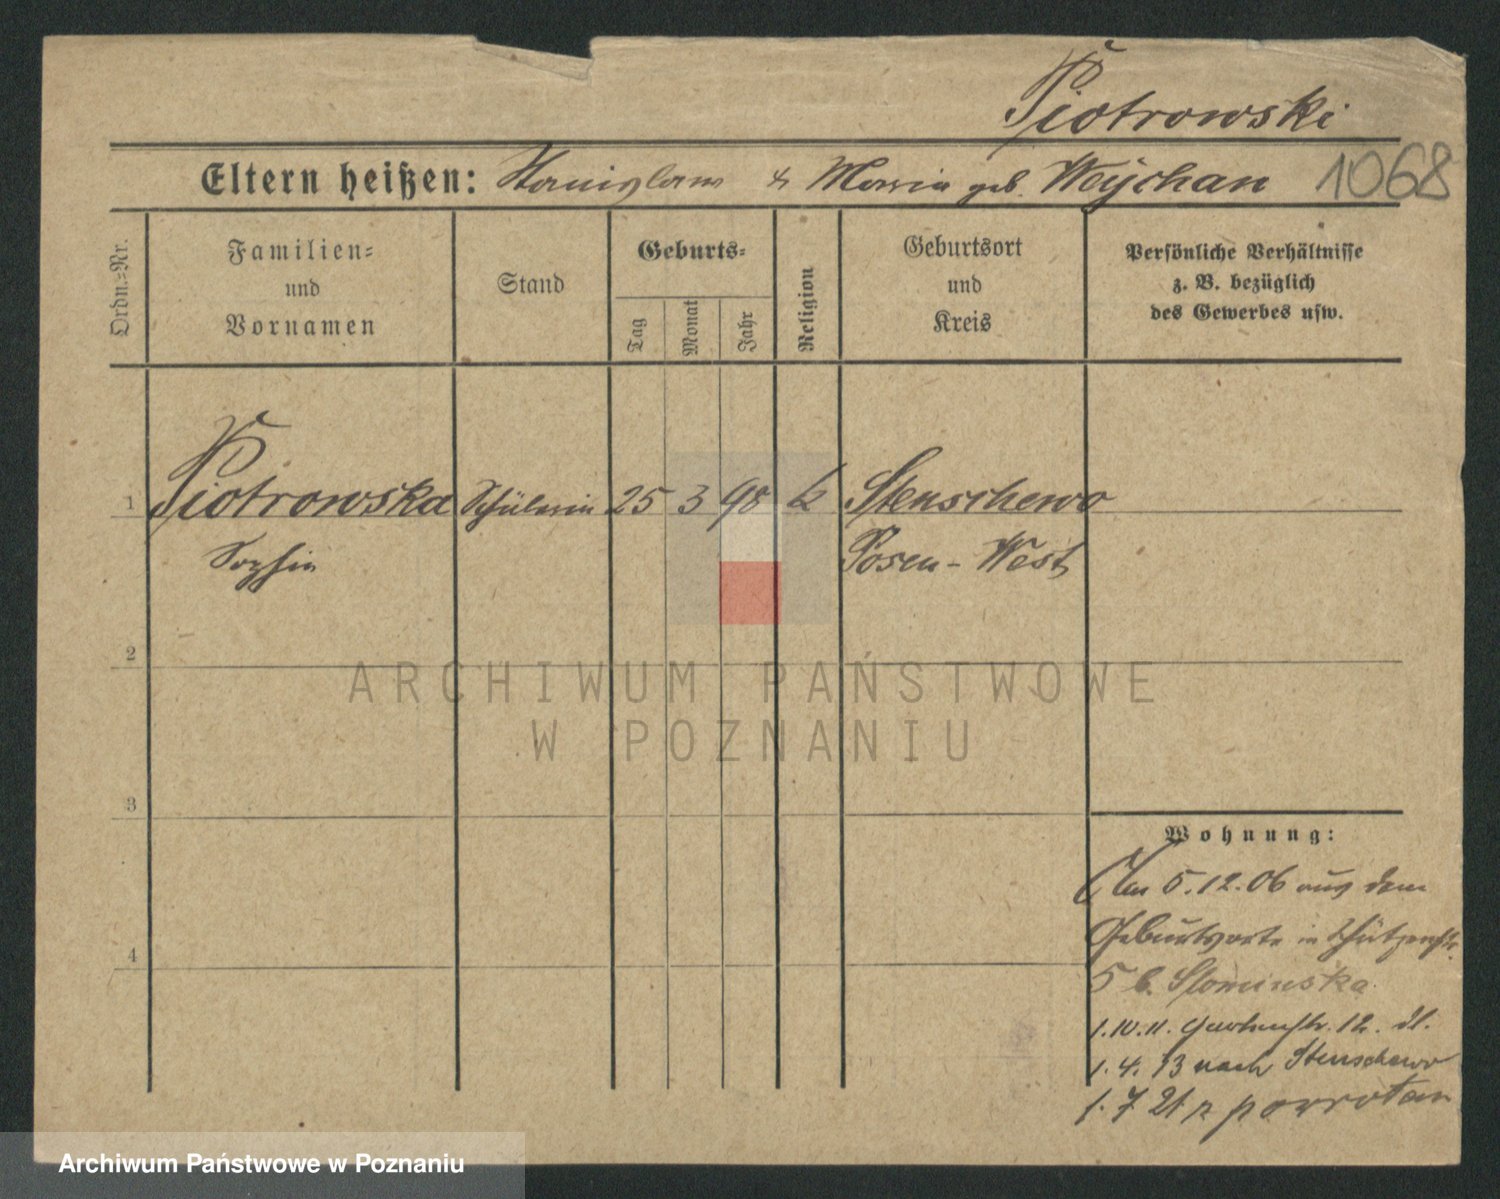 Piotrowski
Eltern heißen: Stanislaus & Maria geb. Weychan 1068
Ordn.=Nr.
Familien=
und
Vornamen
Stand
Geburts=
Tag
Monat
Jahr
Religion
Geburtsort
und
Kreis
Persönliche Verhältnisse
z. B. bezüglich
des Gewerbes usw.
1 Piotrowska Schülerin 25 3 98 k Stenschewo
Sophie Posen-West
2
3
4
Wohnung:
Am 5.12.06 aus dem
Geburtsorte in Schützenstr.
5 b. Slominska
1.10.11. Gartenstr. 12. dl.
1. 4. 13 nach Stenschewo
1. 7 21 z powrotem
ARCHIWUM PAŃSTWOWE
W POZNANIU
Archiwum Państwowe w Poznaniu